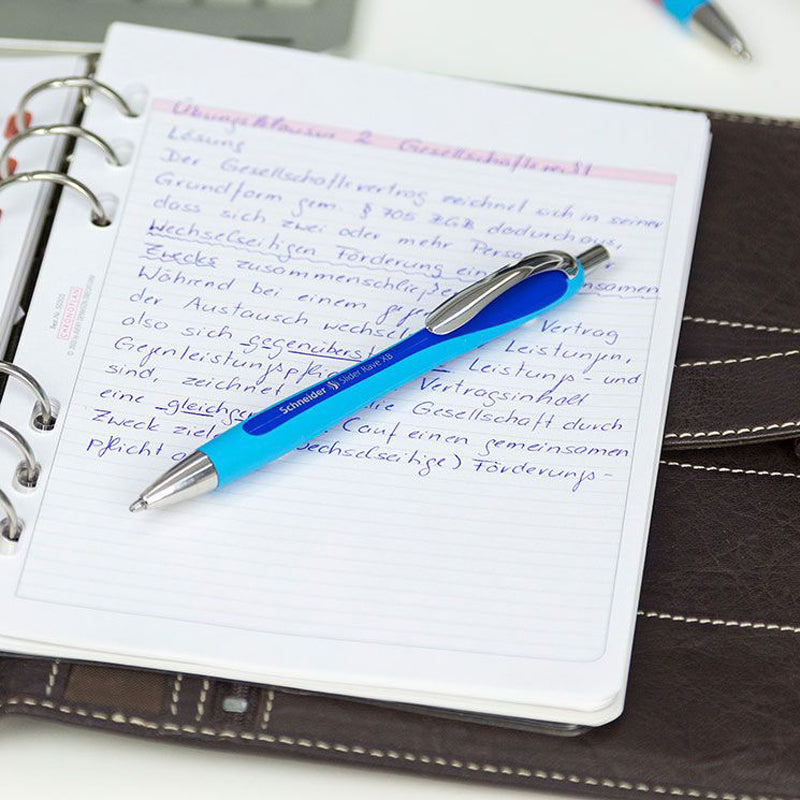 Übungsklausur 2 Gesellschaftsrecht
Lösung
Der Gesellschaftsvertrag zeichnet sich in seiner
Grundform gem. § 705 BGB dadurch aus,
dass sich zwei oder mehr
Wechselseitigen Förderung
Zwecks zusammenschließen
Während bei einem Vertrag
der Austausch Leistungen,
also sich gegenüberst Leistungs- und
Gegenleistungspflic Vertragsinhalt
sind, zeichnet die Gesellschaft durch
eine (auf einen gemeinsamen
Zweck
pflicht wechselseitige) Förderungs-
Schneider Slider Rave XB
CHRONOPLAN